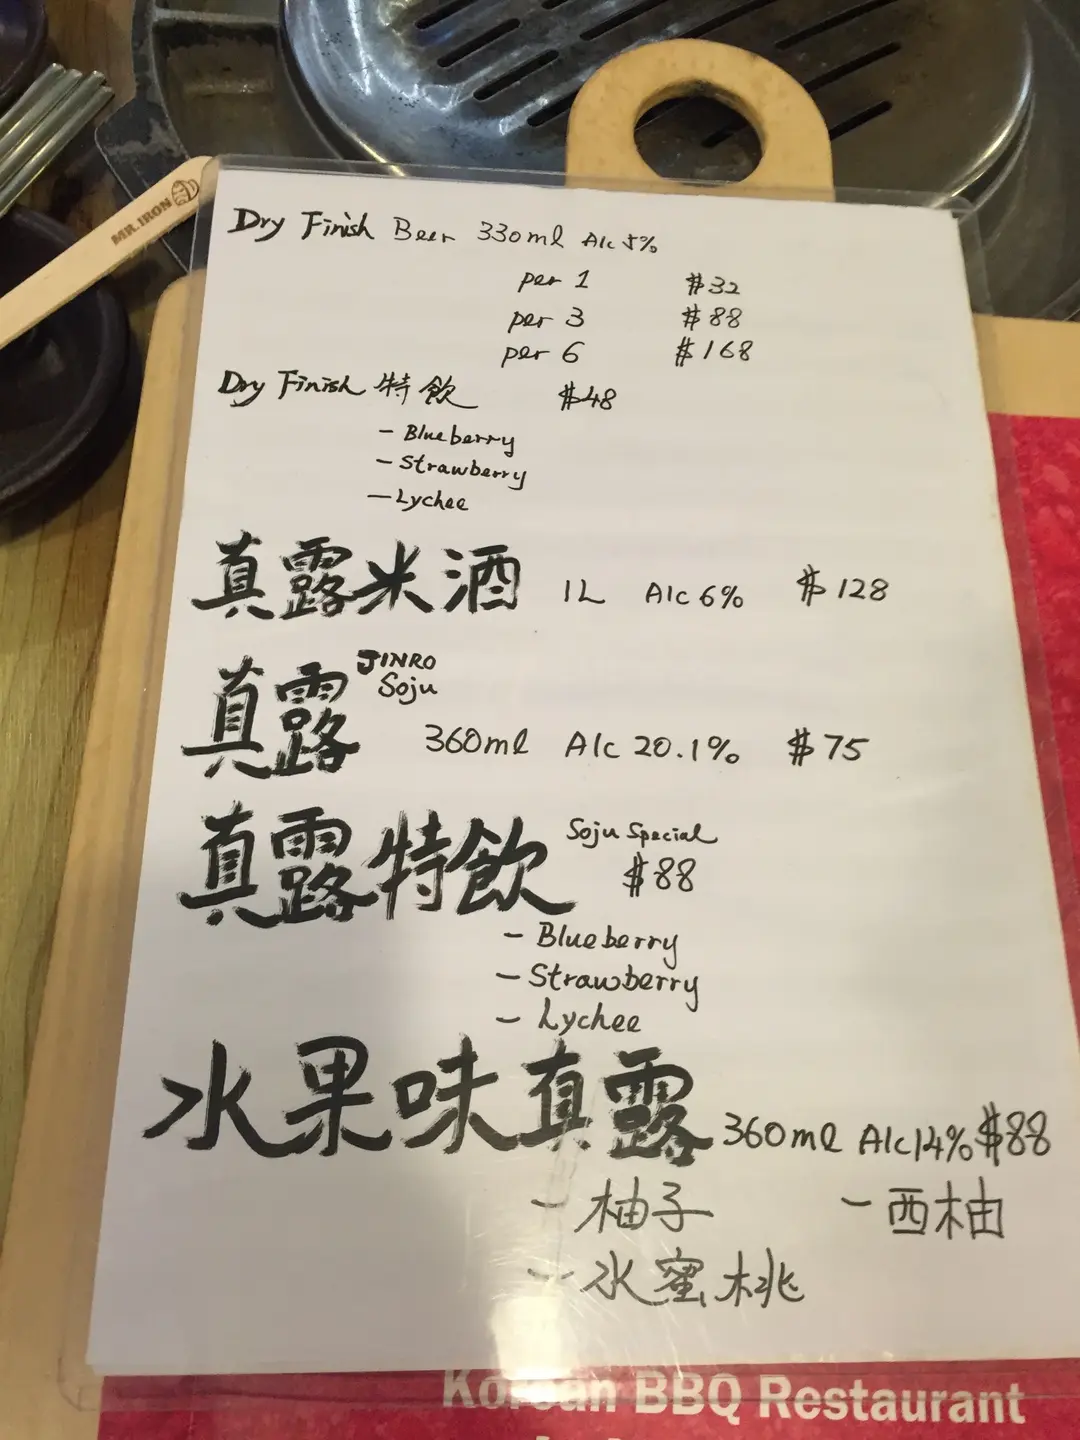 MR. IRON
Dry Finish Beer 330ml Alc 5%
per 1 $32
per 3 $88
per 6 $168
Dry Finish 特飲 $48
- Blueberry
- Strawberry
- Lychee
真露米酒 1L Alc 6% $128
真露 JINRO
Soju
360ml Alc 20.1% $75
真露特飲 Soju Special
$88
- Blueberry
- Strawberry
- Lychee
水果味真露 360ml Alc14% $88
- 柚子 - 西柚
- 水蜜桃
Korean BBQ Restaurant